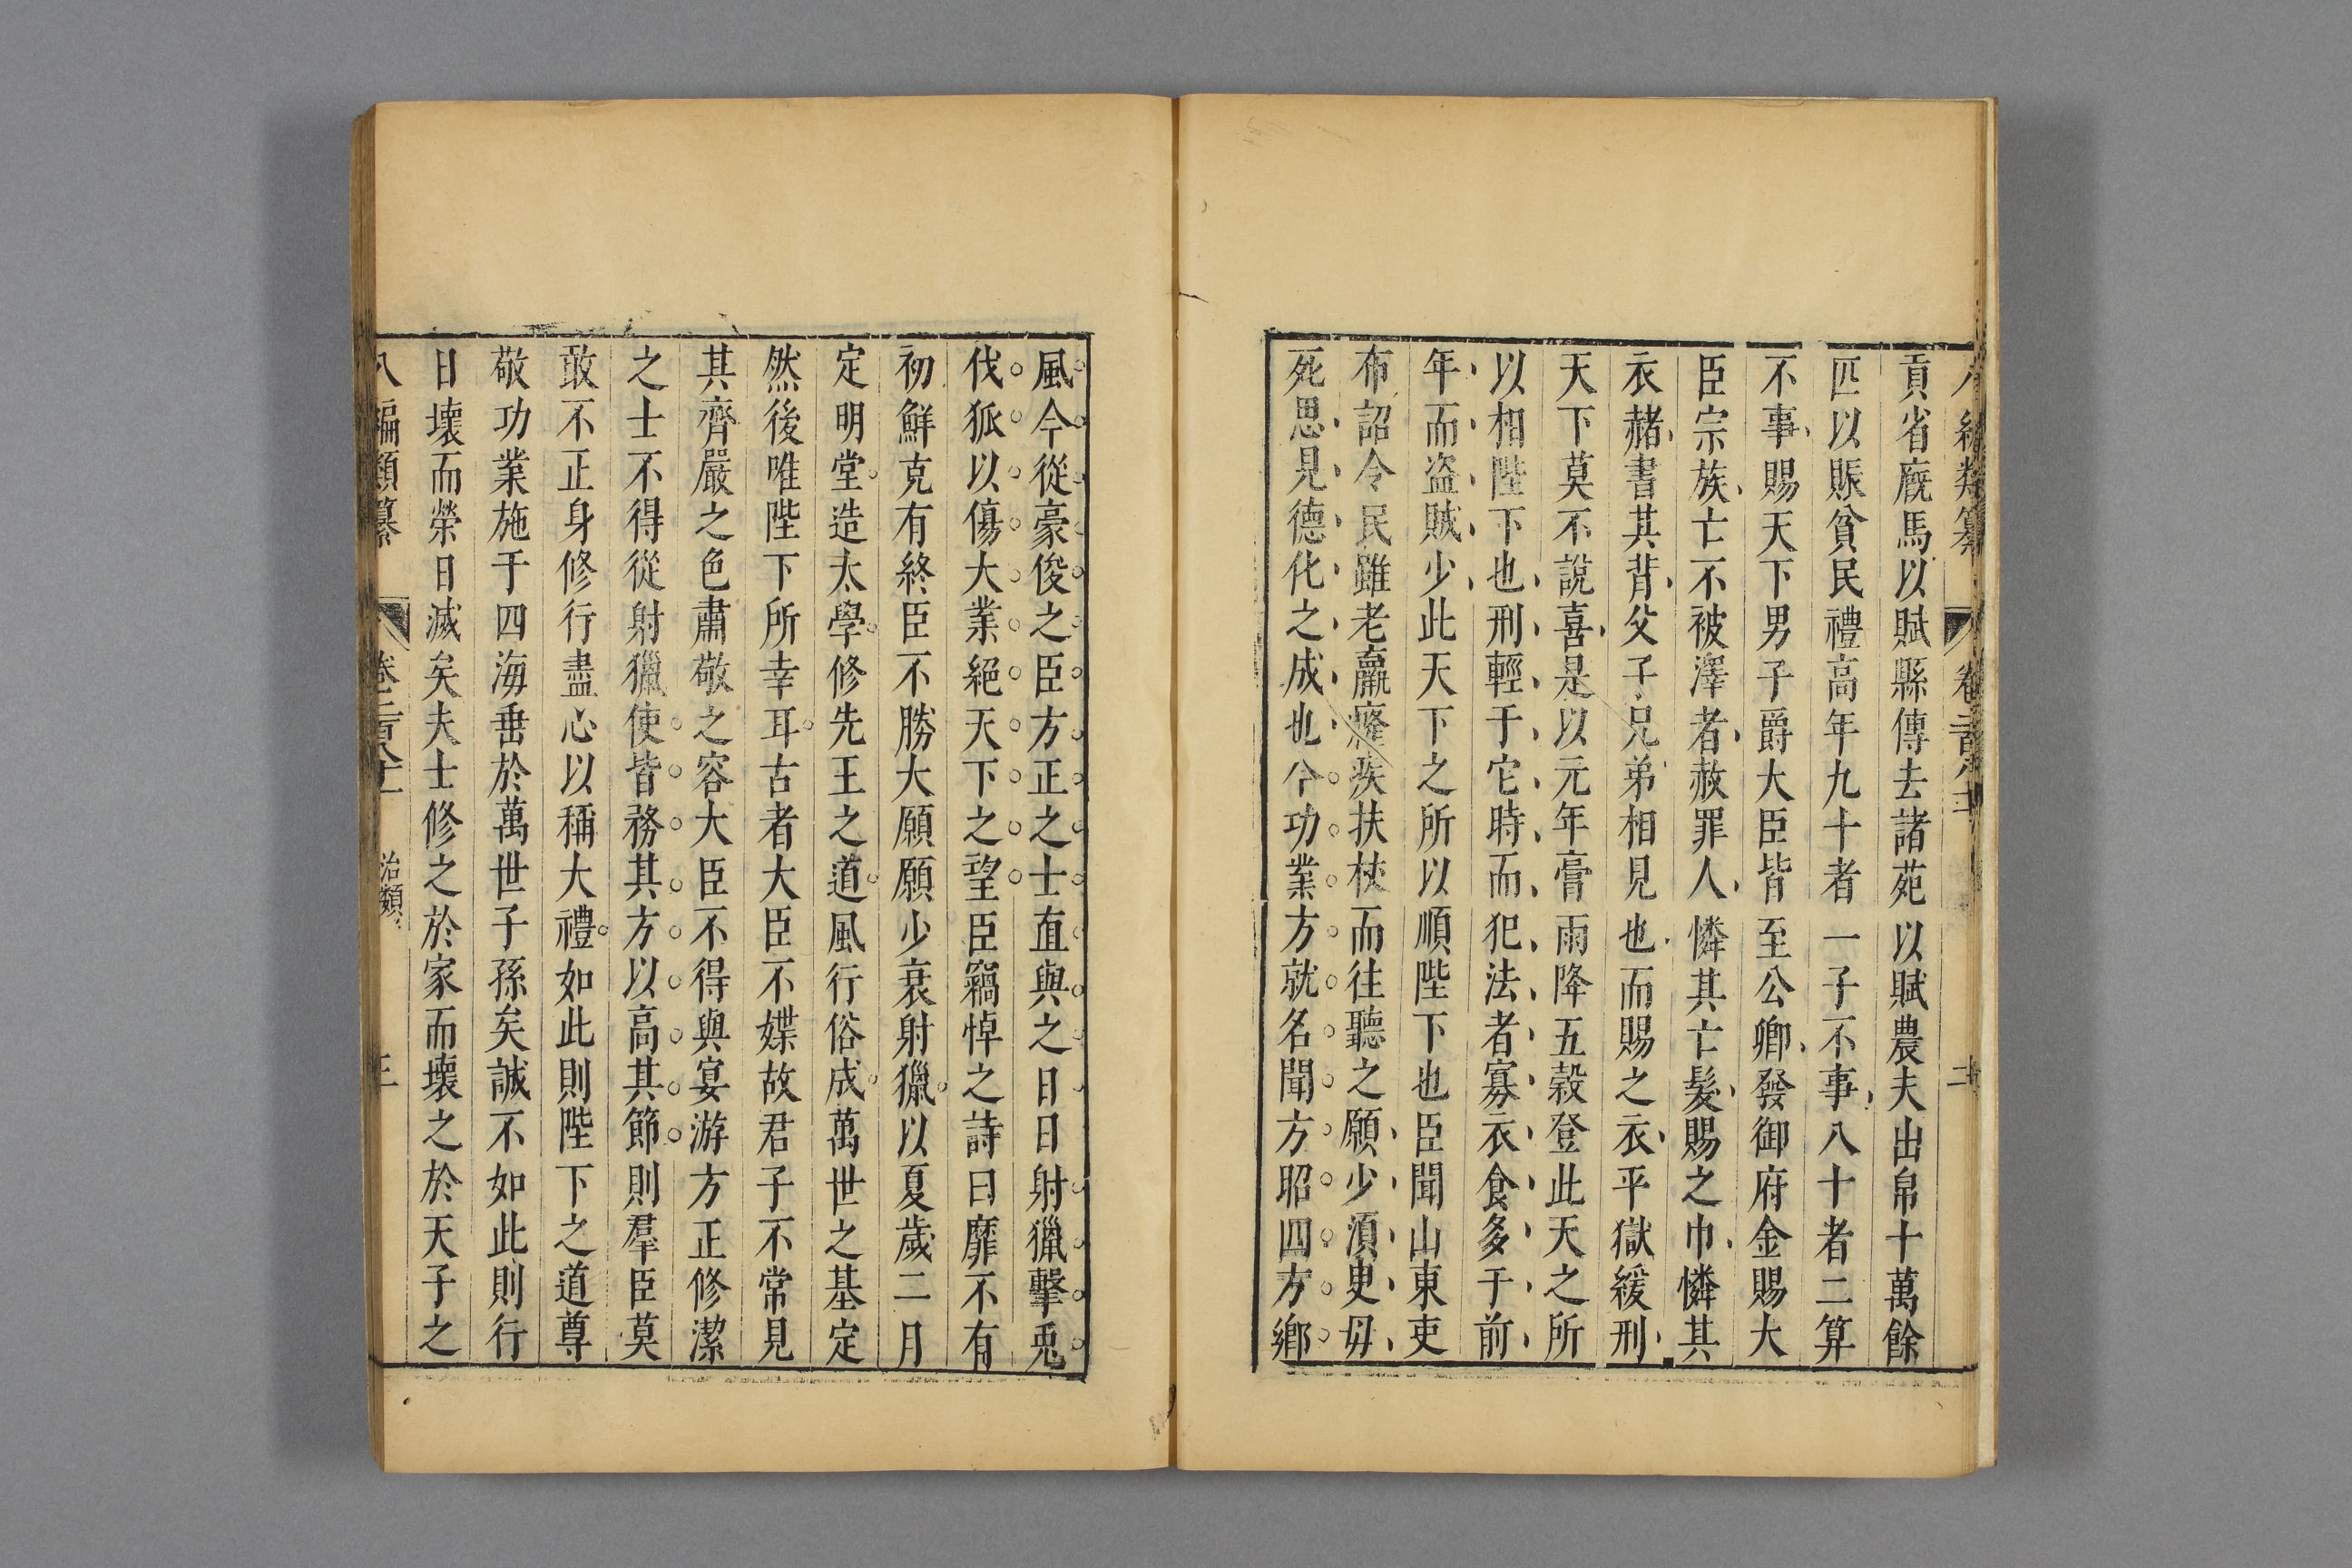 貢省廄馬以賦縣傳去諸苑以賦農夫出帛十萬餘
匹以賑貧民禮高年九十者一子不事八十者二算
不事賜天下男子爵大臣皆至公卿發御府金賜大
臣宗族亡不被澤者赦罪人憐其亡髮賜之巾憐其
衣赭書其背父子兄弟相見也而賜之衣平獄緩刑
天下莫不說喜是以元年膏雨降五穀登此天之所
以相陛下也刑輕于它時而犯法者寡衣食多于前
年而盜賊少此天下之所以順陛下也臣聞山東吏
布詔令民雖老羸癃疾扶杖而往聽之願少湏臾毋
死思見德化之成也今功業方就名聞方昭四方鄉
風今從豪俊之臣方正之士直與之日日射獵擊兎
伐狐以傷大業絕天下之望臣竊悼之詩曰靡不有
初鮮克有終臣不勝大願願少衰射獵以夏歲二月
定明堂造太學修先王之道風行俗成萬世之基定
然後唯陛下所幸耳古者大臣不媟故君子不常見
其齊嚴之色肅敬之容大臣不得與宴游方正修潔
之士不得從射獵使皆務其方以高其節則羣臣莫
敢不正身修行盡心以稱大禮如此則陛下之道尊
敬功業施于四海垂於萬世子孫矣誠不如此則行
日壞而榮日滅矣夫士修之於家而壞之於天子之
八編類纂 治類 三